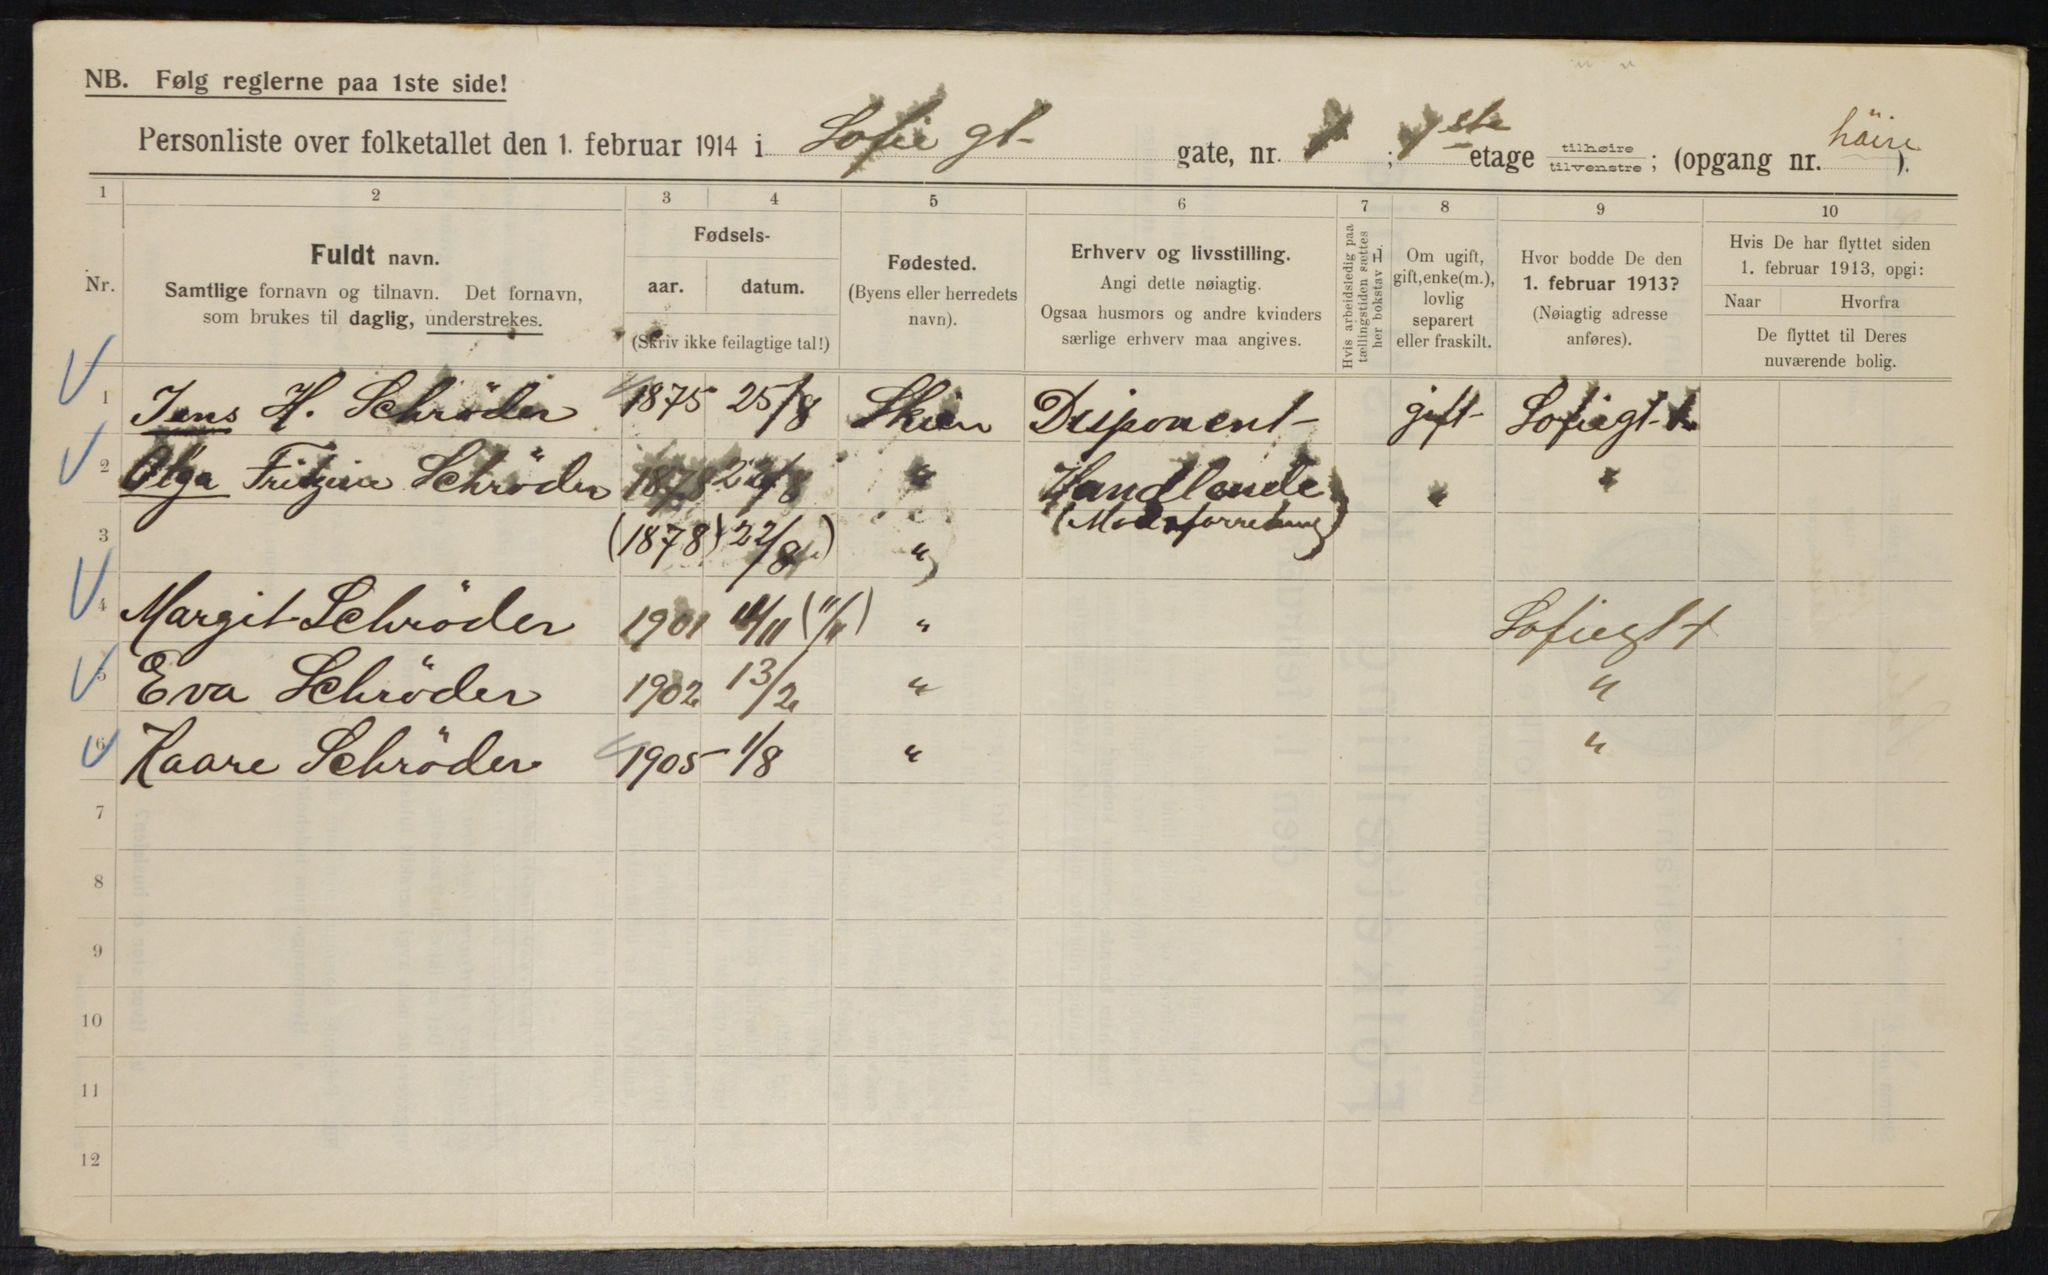 NB. Følg reglerne paa 1ste side!
Personliste over folketallet den 1. februar 1914 i Sofie gt- gate, nr. ; 1ste etage tilhøire tilvenstre; (opgang nr. häire ).
1 2 3 4 5 6 7 8 9 10
Nr.
Fuldt navn.
Samtlige fornavn og tilnavn. Det fornavn,
som brukes til daglig, understrekes.
Fødsels-
aar. datum.
(Skriv ikke feilagtige tal!)
Fødested.
(Byens eller herredets
navn).
Erhverv og livsstilling.
Angi dette nøiagtig.
Ogsaa husmors og andre kvinders
særlige erhverv maa angives.
Hvis arbeidsledig paa
tællingstiden sættes
her bokstav L.
Om ugift,
gift, enke(m.),
lovlig
separert
eller fraskilt.
Hvor bodde De den
1. februar 1913?
(Nøiagtig adresse
anføres).
Hvis De har flyttet siden
1. februar 1913, opgi:
Naar Hvorfra
De flyttet til Deres
nuværende bolig.
1 Jens H. Schröder 1875 25/8 Skien Disponent gift Sofiegt.
2 Olga Fritzine Schröder 1878 22/8 " Handlende " "
3 (1878) 22/8 ) " ) (Modeforretning)
4 Margit Schröder 1901 11/11 (11/11) " Sofiegt
5 Eva Schröder 1902 13/2 " "
6 Kaare Schröder 1905 1/8 " "
7
8
9
10
11
12